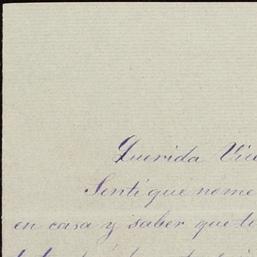 Querida Vic
Sentí que no me
en casa y saber que te